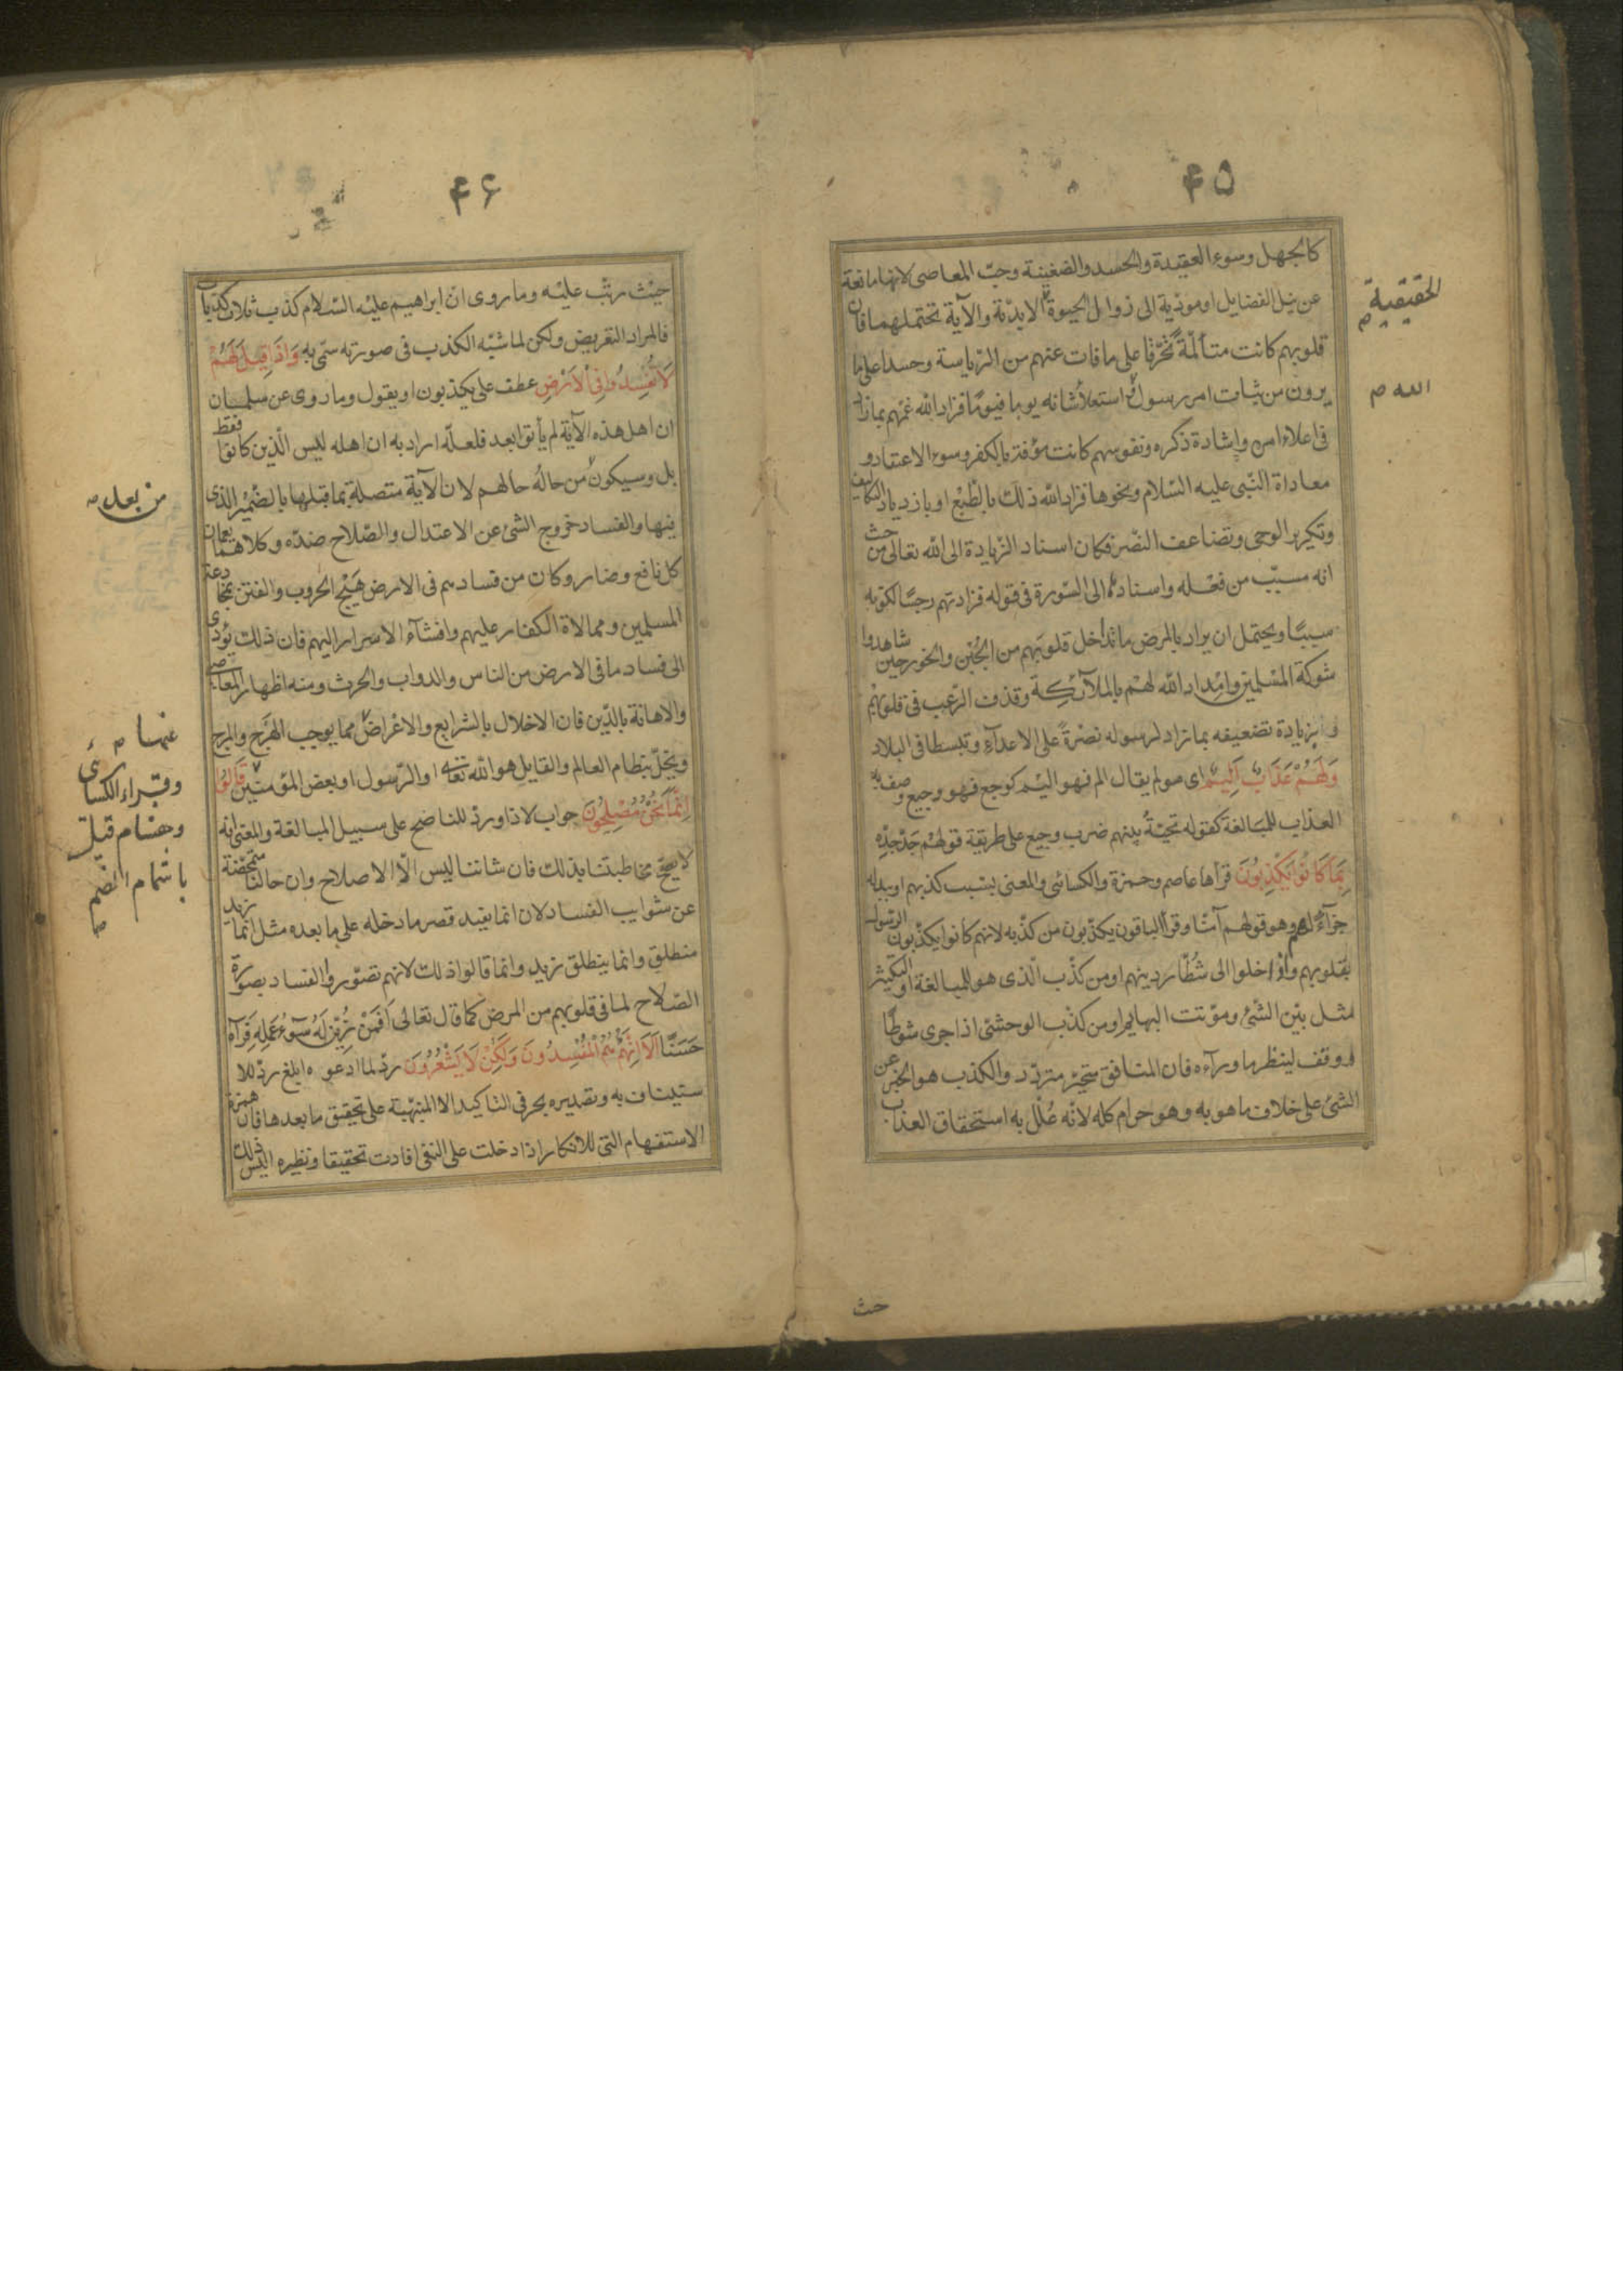 ۴۵
كالجهل وسوء العقيدة والحسد والضغينة وحبّ المعاصى لانها مانعة
عن نيل الفضايل او مودّية الى زوال الحيوة الابديّة والآية تحتملهما فان
الحقيقية
قلوبهم كانت متألّمة تحرّقا على ما فات عنهم من الرّياسة وحسدا على ما
يرون من ثبات امر رسول واستعلاء شانه يوما فيوما فزاد الله غمّهم بما زاد
الله
فى اعلاء امره واشادة ذكره ونفوسهم كانت مؤفة بالكفر وسوء الاعتقاد و
معاداة النّبى عليه السّلام ونحوها فزاد الله ذلك بالطّبع او بازدياد التكاليف
وتكرير الوحى وتضاعف النّصر فكان اسناد الزّيادة الى الله تعالى من حيث
انه مسبّب من فعله واسنادها الى السّورة فى قوله فزادتهم رجسًا لكونه
سببًا ويحتمل ان يراد بالمرض ما تداخل قلوبهم من الجُبْن والخور حين شاهدوا
شوكة المسْلمين وامِداد الله لهمْ بالملآئكة وقذف الرّعب فى قلوبهمْ
و بزيادة تضعيفه بما زاد لرسوله نصْرةً على الاعدآء وتبسطا فى البلاد
وَلَهُمْ عَذَابٌ اَلِيمٌ اى مولم يقال الم فهو اليْم كوجع فهو وجيع وصف به
العذاب للمبالغة كقوله تحيّةُ بينهم ضرب وجيع على طريقة قولهمْ جَدّ جدّه
بِمَا كَانُوا يَكْذِبُونَ قرأها عاصم وحمزة والكسائى والمعنى بسبب كذبهم او ببدله
جزآءً لهم وهو قولهم آمنّا وقرأ الباقون يكذّبون من كذّبه لانهم كانوا يكذّبون الرّسول
بقلوبهم واذا خلوا الى شُطّار دينهم او من كذّب الّذى هو للمبالغة او التكثير
مثل بيّن الشّئ وموّتت البهايم او من كذّب الوحشىّ اذا جرى شوطًا
ووقف لينظر ما ورآءه فان المنافق متحيّر متردّد والكذب هو الخبر عن
الشئ على خلاف ما هو به وهو حرام كله لانّه عُلّل به استحقاق العذاب
حيث
۴۶
حيْث رتّب عليْه وما روى انّ ابراهيم عليْه السّلام كذب ثلاث كذبات
فالمراد التعريض ولكن لما شبْه الكذب فى صورته سمّى به وَاِذَا قِيلَ لَهُمْ
لَاتُفْسِدُوا فِى الْاَرْضِ عطف على يكذبون او يقول وما روى عن سلمان
ان اهل هذه الآية لم يأتوا بعد فلعلّه اراد به ان اهله ليس الّذين كانوا فقط
بل وسيكون من حالهُ حالهم لان الآية متصلة بما قبلها بالضّمير الّذى
من بعد
فيها والفساد خروج الشئ عن الاعتدال والصّلاح ضدّه وكلاهما يعمان
كل نافع وضار وكان من فسادهم فى الارض هَيْج الحروب والفتن بمخادعة
المسلمين وممالاة الكفار عليهم وافشآء الاسرار اليهم فان ذلك يؤدى
الى فساد ما فى الارض من الناس والدواب والحرث ومنه اظهار المعاصى
والاهانة بالدّين فان الاخلال بالشرايع والاعراض مما يوجب الهَرْج والمرج
عنها
ويخلّ بنظام العالم والقايل هو الله تعالى او الرّسول او بعض المؤمنين قَالُوا
وقراء الكسائى
وهشام قيل
باشمام الضّم
اِنَّمَا نَحْنُ مُصْلِحُونَ جواب لاذا وردّ للناصح على سبيل المبالغة والمعنى انّه
لا يصحّ مخاطبتنا بذلك فان شاننا ليس الّا الاصلاح وان حالنا متمحّضة
عن شوايب الفساد لان انما يفيد قصر ما دخله على ما بعده مثل انّما زيد
منطلق وانما ينطلق زيد وانما قالوا ذلك لانهم تصوّروا الفساد بصورة
الصّلاح لما فى قلوبهم من المرض كما قال تعالى اَفَمَنْ زُيِّنَ لَهُ سُوٓءُ عَمَلِهِ فَرَآهُ
حَسَنًا اَلَا اِنَّهُمْ هُمُ الْمُفْسِدُونَ وَلَكِنْ لَا يَشْعُرُونَ ردّ لما ادعوه ابلغ ردّ للا
ستيناف به وتصديره بحرفى التاكيد الا المنبّهة على تحقيق ما بعدها فان همزة
الاستفهام التى للانكار اذا دخلت على النفى افادت تحقيقا ونظيره اليْس ذلك